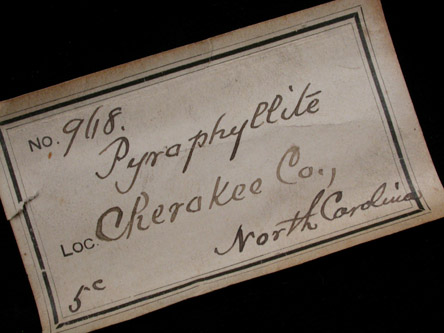 No. 9418.
Pyraphyllite
Loc. Cherokee Co.,
North Carolina
5c